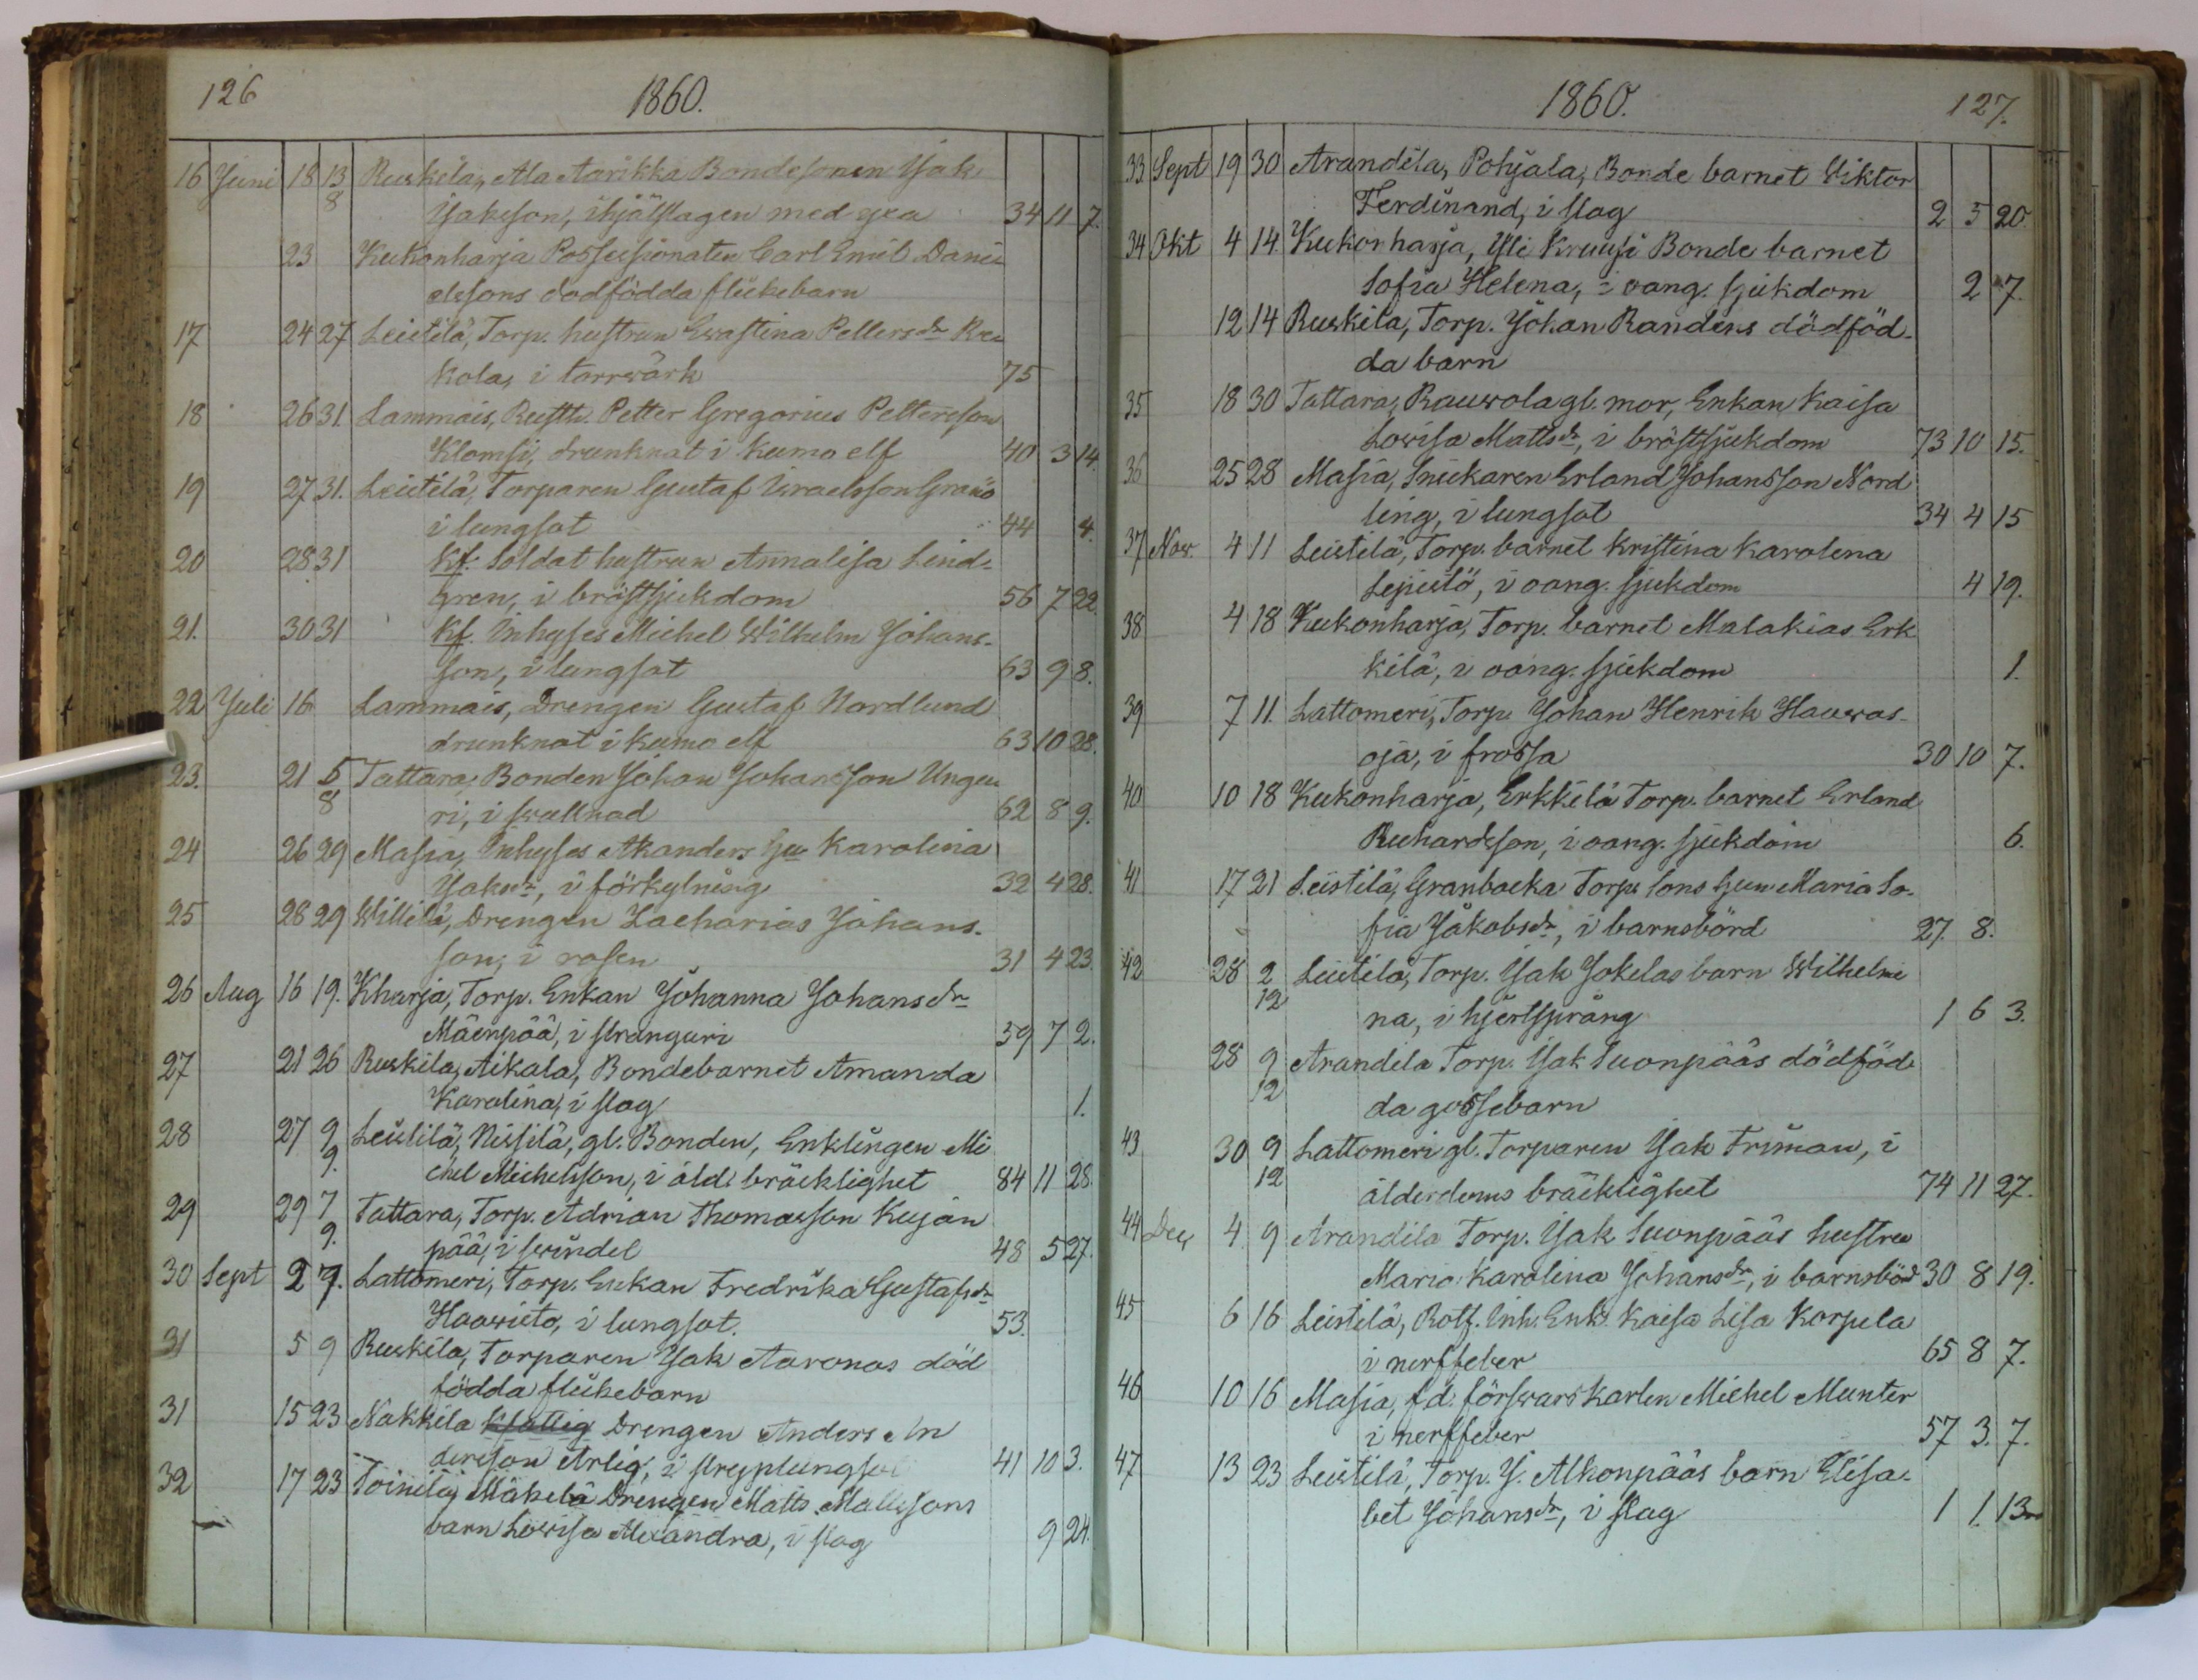 126
1860.
16 Juni 18 13/8 Ruskila, Ala Aarikka Bondesonen Jak.
Jakson, ihjälslagen med yxa 34 11 7.
23 Kukonharja Possessionaten Carl Emil Dani
elssons dödfödda flickebarn
17 24 27 Leistilä, Torp. hustrun Evastina Pettersdr
kola, i torrwärk 75
18 26 31. Lammais, Rustth. Petter Gregorius Pettersson
Klomsi, drunknat i Kumo elf 40 3 14.
19 27 31. Leistilä, Torparen Gustaf Israelsson Granö
i lungsot 44 4.
20 28 31 Kf. Soldat hustrun Annalisa Lind-
gren, i bröstsjukdom 56 7 22
21. 30 31 Kf. Inhyses Michel Wilhelm Johans-
son, i lungsot 63 9 8.
22 Juli 16 Lammais, Drengen Gustaf Nordlund
drunknat i Kumo elf 63 10 28.
23. 21 5/8 Tattara, Bonden Johan Johansson Ungu
ri, i swullnad 62 8 9.
24 26 29 Masia, Inhyses Akanders hu Karolina
Jaksdr, i förkylning 32 4 28.
25 28 29 Willilä, Drengen Zacharias Johans-
son, i rosen 31 4 23.
26 Aug 16 19. Kharja, Torp. Enkan Johanna Johansdr
Mäenpää, i stranguri 59 7 2.
27 21 26 Ruskila, Aikala, Bondebarnet Amanda
Karolina, i slag 1.
28 27 9/9. Leistilä, Nissilä, gl. Bonden, Enklingen Mi
chel Michelsson, i åld. bräcklighet 84 11 28.
29 29 7/9. Tattara, Torp. Adrian Thomasson Kujan
pää, i swindel 48 5 27.
30 Sept 2 9. Lattomeri, Torp. Enkan Fredrika Gustafsdr
Haawisto, i lungsot. 53.
31 5 9 Ruskila, Torparen Jak Aaronas död
födda flickebarn
31 15 23 Nakkila Drengen Anders An
dersson Arlig, i stryplungsot 41 10 3.
32 17 23 Toinila, Mäkelä Drengen Matts Mattssons
barn Lowisa Alexandra, i slag 9 24.
1860.
127.
33. Sept 19 30 Arandila, Pohjala, Bonde barnet Wiktor
Ferdinand, i slag 2 5 20.
34 Okt 4 14. Kukonharja, Yli Kruusi Bonde barnet
Sofia Helena, i oang. sjukdom 2 7.
12 14 Ruskila, Torp. Johan Randens dödföd-
da barn
35 18 30 Tattara, Rauwola gl. mor, Enkan Kaisa
Lowisa Mattsdr, i bröstsjukdom 73 10 15.
36 25 28 Masia, Snickaren Erland Johansson Nord
ling, i lungsot 34 4 15
37 Nov. 4 11 Leistilä, Torp. barnet Kristina Karolina
Lepistö, i oang. sjukdom 4 19.
38 4 18 Kukonharja, Torp. barnet Malakias Erk
kilä, i oang. sjukdom 1.
39 7 11. Lattomeri, Torp. Johan Henrik Hauwas-
oja, i frossa 30 10 7.
40 10 18 Kukonharja, Erkkilä Torp. barnet Erland
Richardsson, i oang. sjukdom 6.
41 17 21 Leistilä, Granbacka Torp. sons hu Maria So-
fia Jakobsdr, i barnsbörd 27. 8.
42 28 2/12 Leistilä, Torp. Jak Jokelas barn Wilhelmi
na, i hjertsprång 1 6 3.
28 9/12 Arandila Torp. Jak Suonpääs dödföd-
da gossebarn
43 30 9/12 Lattomeri gl. Torparen Jak Friman, i
ålderdoms bräcklighet 74 11 27.
44 Dec 4 9 Arandila Torp. Jak Suonpääs hustru
Maria Karolina Johansdr, i barnsbörd 30 8 19.
45 6 16 Leistilä, Rotf. Inh. Enk. Kaisa Lisa Korpela
i nerffeber 65 8 7.
46 10 16 Masia, fd. förswarskarlen Michel Munter
i nerffeber 57 3. 7.
47 13 23 Leistilä, Torp. J. Alkonpääs barn Elisa-
bet Johansdr, i slag 1 1. 13